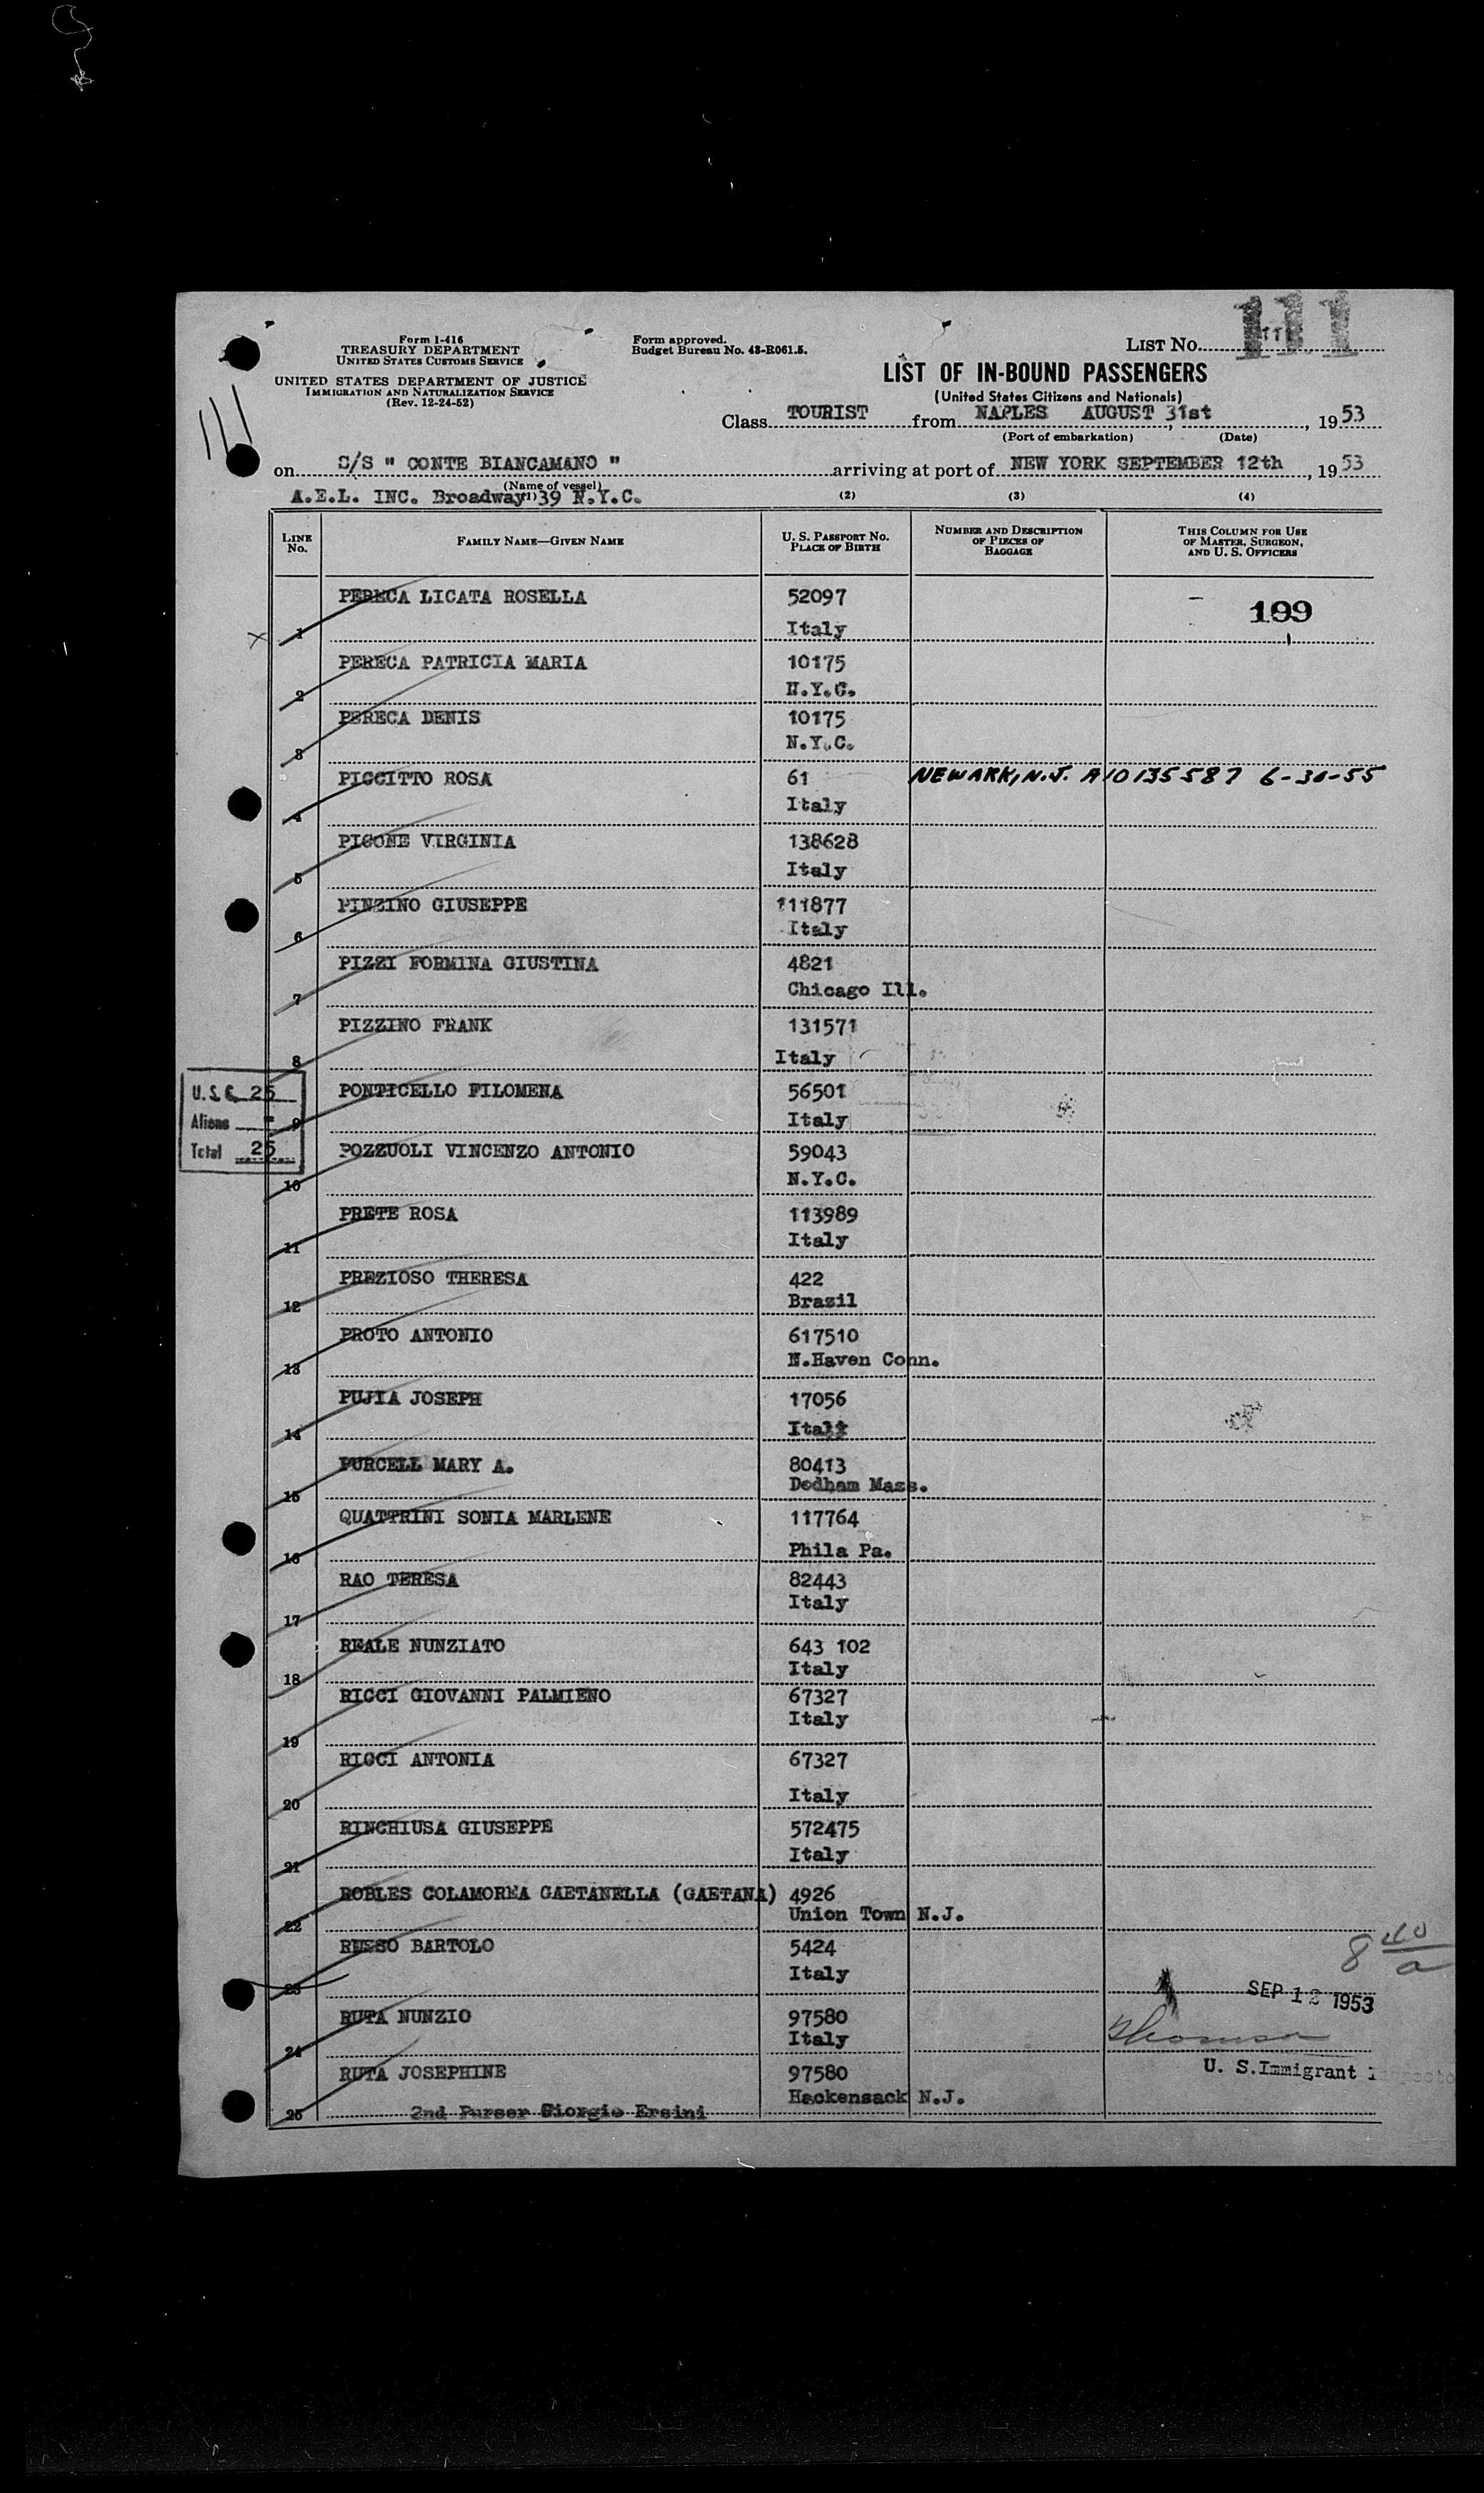 111
Form I-416
TREASURY DEPARTMENT
UNITED STATES CUSTOMS SERVICE
UNITED STATES DEPARTMENT OF JUSTICE
IMMIGRATION AND NATURALIZATION SERVICE
(Rev. 12-24-52)
Form approved.
Budget Bureau No. 43-R061.5.
LIST NO.
LIST OF IN-BOUND PASSENGERS
(United States Citizens and Nationals)
111
Class TOURIST from NAPLES AUGUST 31st, 1953
(Port of embarkation) (Date)
on S/S " CONTE BIANCAMANO " arriving at port of NEW YORK SEPTEMBER 12th, 1953
(Name of vessel)
A.E.L. INC. Broadway 39 N.Y.C.
(1) (2) (3) (4)
LINE NO. FAMILY NAME—GIVEN NAME U. S. PASSPORT NO. PLACE OF BIRTH NUMBER AND DESCRIPTION OF PIECES OF BAGGAGE THIS COLUMN FOR USE OF MASTER, SURGEON, AND U. S. OFFICERS
PERECA LICATA ROSELLA 52097
1 Italy
199
PERECA PATRICIA MARIA 10175
2 N.Y.C.
PERECA DENIS 10175
3 N.Y.C.
PICCITTO ROSA 61 NEWARK, N.J. A10135587 6-30-55
4 Italy
PICONE VIRGINIA 138628
5 Italy
PINZINO GIUSEPPE 111877
6 Italy
PIZZI FORMINA GIUSTINA 4821
7 Chicago Ill.
PIZZINO FRANK 131571
8 Italy
U.S.C. 25
Aliens -
Total 25
PONTICELLO FILOMENA 56501
9 Italy
POZZUOLI VINCENZO ANTONIO 59043
10 N.Y.C.
PRETE ROSA 113989
11 Italy
PREZIOSO THERESA 422
12 Brazil
PROTO ANTONIO 617510
13 N.Haven Conn.
PUJIA JOSEPH 17056
14 Italy
PURCELL MARY A. 80413
15 Dedham Mass.
QUATTRINI SONIA MARLENE 117764
16 Phila Pa.
RAO TERESA 82443
17 Italy
REALE NUNZIATO 643 102
18 Italy
RICCI GIOVANNI PALMIENO 67327
19 Italy
RICCI ANTONIA 67327
20 Italy
RINCHIUSA GIUSEPPE 572475
21 Italy
ROBLES COLAMOREA GAETANELLA (GAETANA) 4926
22 Union Town N.J.
RUSSO BARTOLO 5424
23 Italy
8 40/a
SEP 12 1953
RUTA NUNZIO 97580
24 Italy
U. S. Immigrant Inspector
RUTA JOSEPHINE 97580
25 Hackensack N.J.
2nd Purser Giorgio Ersini